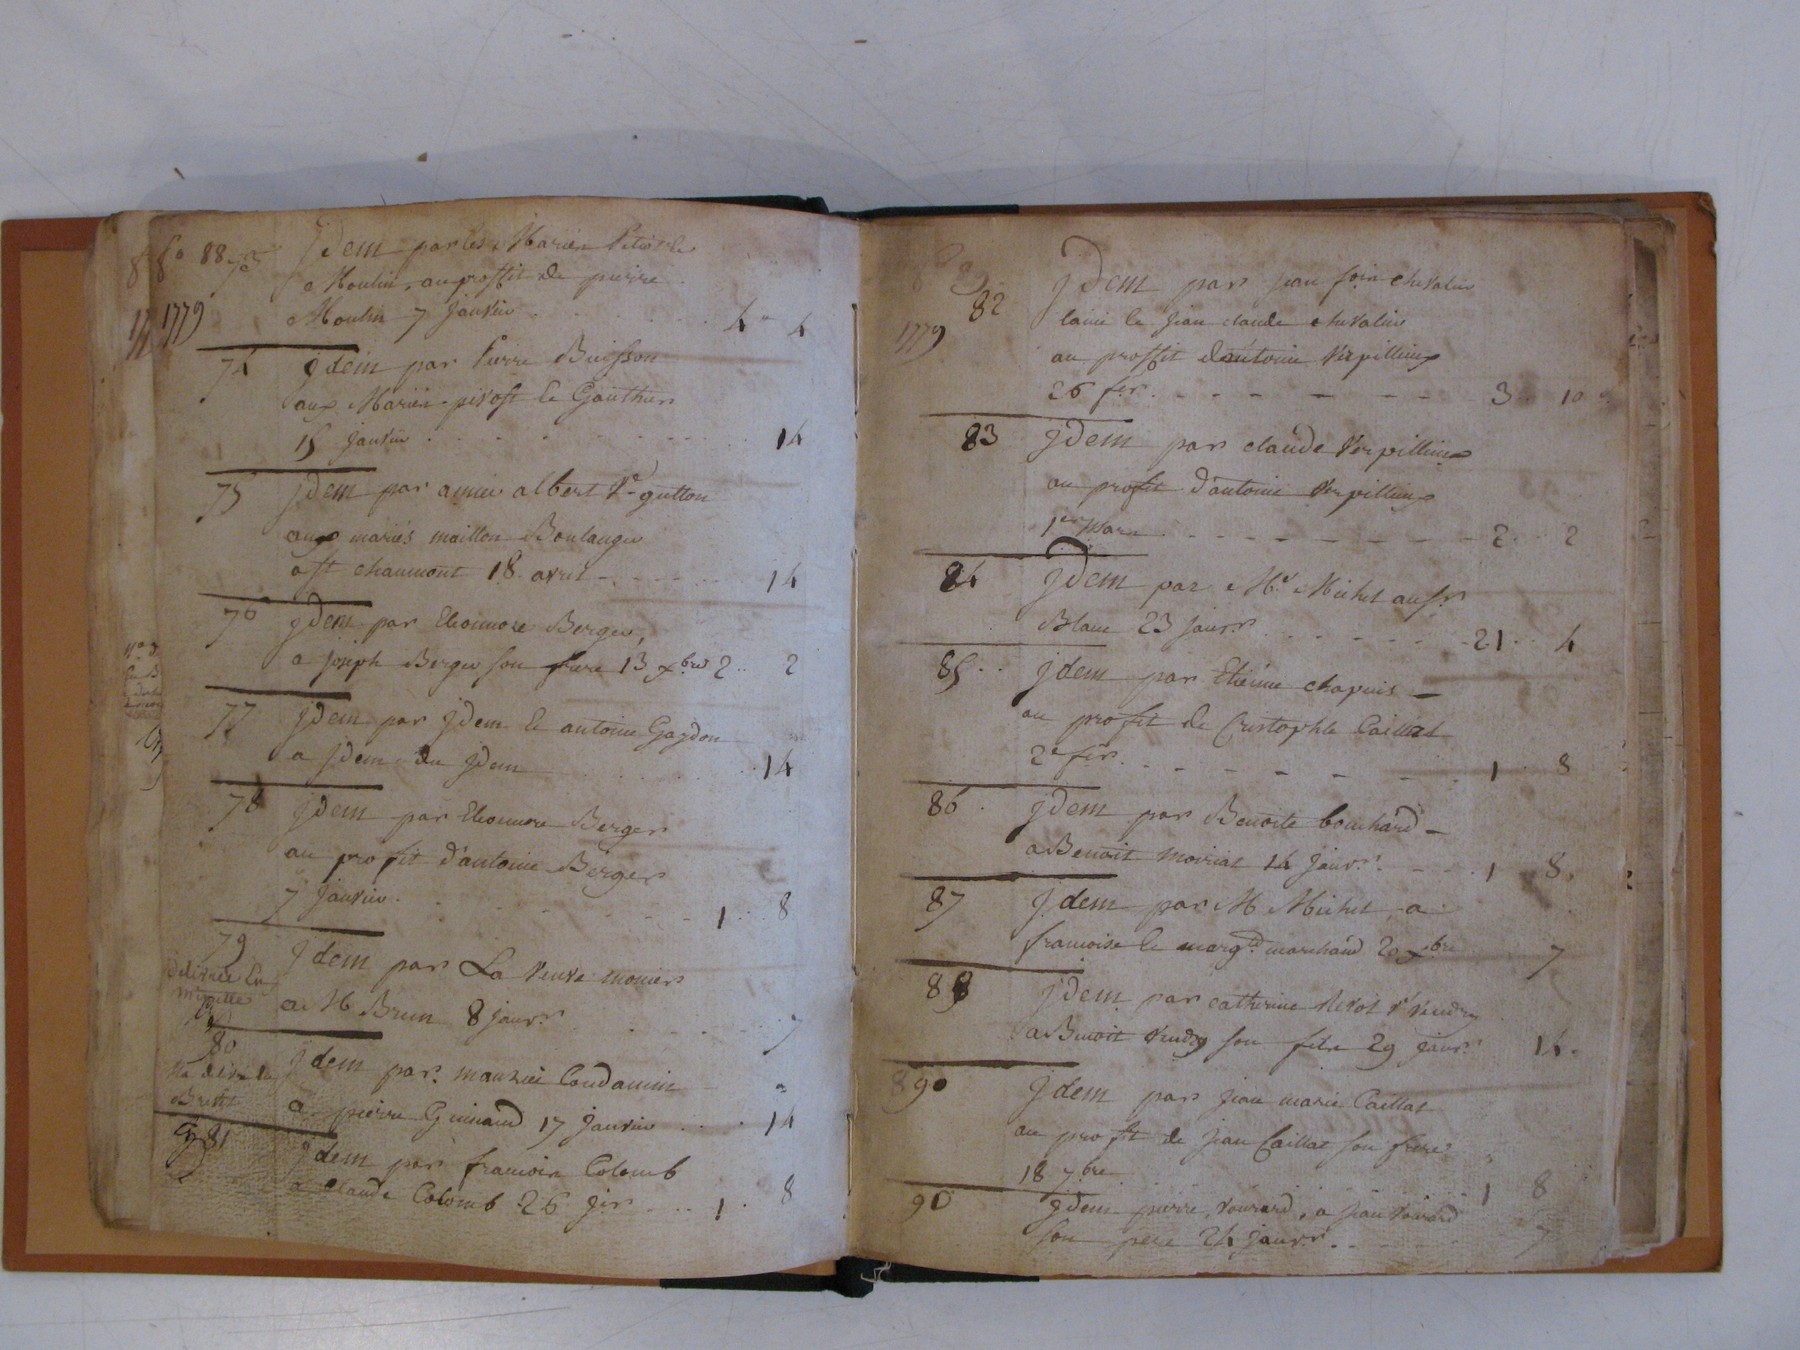 88
Jdem par les Mariés
Moulin, au proffit de pierre
1779 Moulin 7 Janvier 4 4
74 Jdem par Pierre Buisson
aux Mariés pivost le Gauthier
15 Janvier 14
75 Jdem par aimée albert Ve gutton
aux mariés maillon Boulanger
a st chaumont 18 avril 14
76 Jdem par Eleonnore Berger,
a joseph Berger son frere 13 xbre 2 2
77 Jdem par Jdem & antoine Gaydon
a Jdem du Jdem 14
78 Jdem par Eleonnore Berger
au profit d'antoine Berger
7 Janvier 1 8
79 Jdem par La veuve monier
Delivrée En
minutte
a M Brun 8 janvr 7
80 Jdem par maurice Condamin
Brevet
a pierre Guinand 17 janvier 14
81 Jdem par francois Colomb
a Claude Colomb 26 1 8
82 Jdem par jean chevalier
1779 laine le jean claude chevalier
au proffit d'antoine Verpillieux
26 fer 3 10
83 Jdem par claude Verpillieux
au profit d'antoine Verpillieux
1er Mars 2 2
84 Jdem par Michel au sr
Blanc 23 janvr 21 4
85 Jdem par Etienne chapuis
au profit de Cristophle Caillat
2e fer 1 8
86 Jdem par Benoite bouchard
a Benoit moiriat 14 janvr 1 8
87 Jdem par M Michel a
francoise le margd marchand 20 xbre 7
88 Jdem par catherine Ve Vendry
a Benoit Vendry son fils 29 janvr 14
90 Jdem par jean marie Caillat
au profit de jean Caillat son frere
18 7bre 1 8
90 Jdem pierre Vourard, a jean Vourard
son pere 24 janvr 7